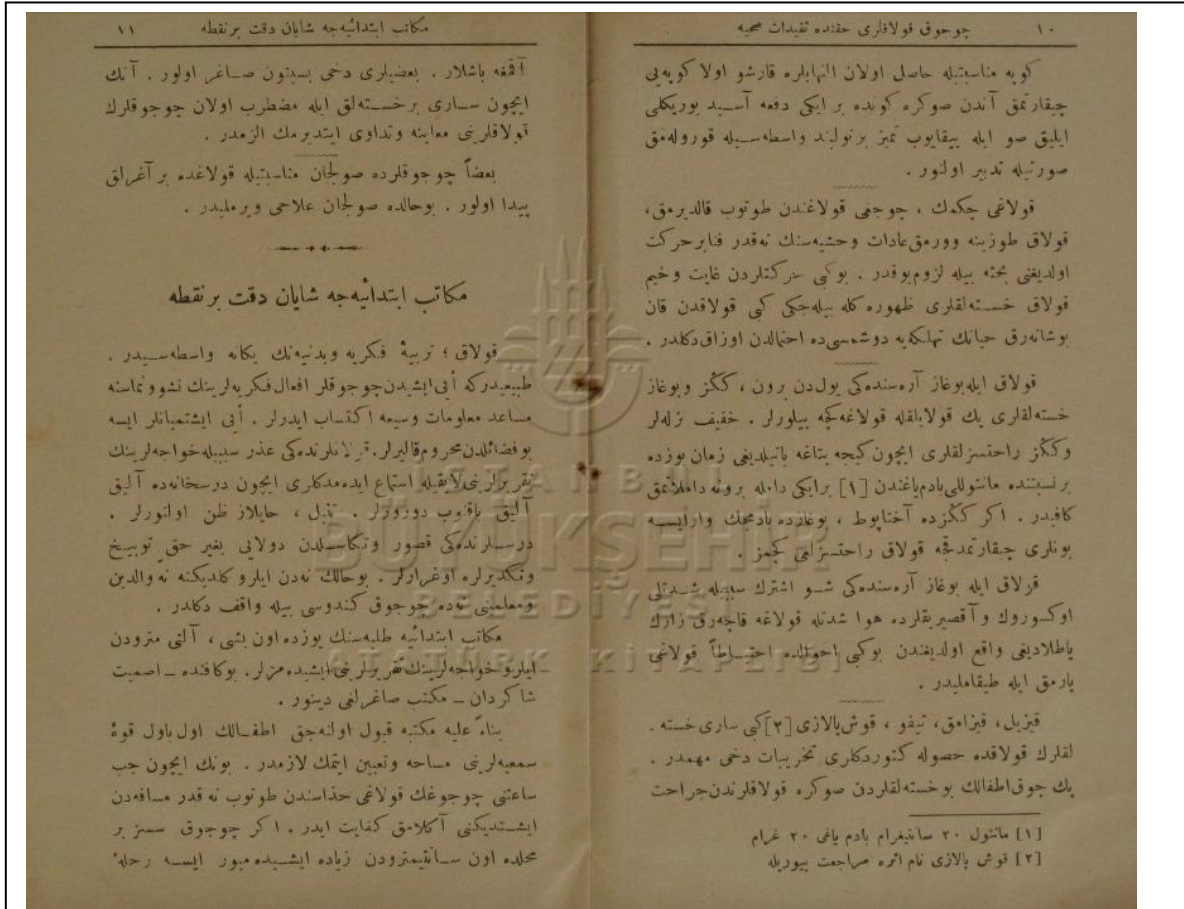 ١٠ چوجوق قولاقلری حقنده تقیدات صحیه
كوپه مناسبتیله حاصل اولان التهابلره قارشو اولا كوپه‌یی
چیقارتمق آندن صوكره كونده بر ایكی دفعه آسید بوریكلی
ایلیق صو ایله ییقایوب تمیز بر تولبند واسطه‌سیله قورولامق
صورتیله تدبیر اولنور .
قولاغی چكمك ، چوجغی قولاغندن طوتوب قالدیرمق،
قولاق طوزینه وورمق عادات وحشیه‌سنك نه‌قدر فنابر حركت
اولدیغنی بحثه بیله لزوم یوقدر . بوكبی حركتلردن غایت وخیم
قولاق خسته‌لقلری ظهوره كله بیله‌جكی كبی قولاقدن قان
بوشانه‌رق حیاتك تهلكه‌یه دوشمسی‌ده احتمالدن اوزاق دكلدر .
قولاق ایله‌بوغاز آره‌سنده‌كی یول‌دن برون ، ككز وبوغاز
خسته‌لقلری پك قولایلقله قولاغه‌كچه بیلورلر . خفیف نزله‌لر
وككز راحتسزلقلری ایچون كیجه یتاغه یاتیلدیغی زمان یوزده
بر نسبتنده مانتوللی‌بادم‌یاغندن [١] برایكی دامله برونه داملاتمق
كافیدر . اكر ككزده آختاپوط ، بوغازده بادمجك وارایسه
بونلری چیقارتمدقجه قولاق راحتسزلغی كچمز .
قولاق ایله بوغاز آره‌سنده‌كی شو اشترك سببیله شدتلی
اوكسوروك و آقصیریقلرده هوا شدتله قولاغه قاچه‌رق زارك
پاطلادیغی واقع اولدیغندن بوكبی احوالده احتیاطاً قولاغی
پارمق ایله طیقاملیدر .
قیزیل ، قیزامق ، تیفو ، قوش‌پالازی [٢] كبی ساری خسته .
لقلرك قولاقده حصوله كتوردكلری تخریبات دخی مهمدر .
پك چوق اطفالك بوخسته‌لقلردن صوكره قولاقلرندن جراحت
[١] مانتول ٢٠ سانتیغرام بادم یاغی ٢٠ غرام
[٢] قوش پالازی نام اثره مراجعت بیوریله
مكاتب ابتدائیه‌جه شایان دقت برنقطه ١١
آقمغه باشلار . بعضیلری دخی بسبتون صاغر اولور . آنك
ایچون ساری برخسته‌لق ایله مضطرب اولان چوجوقلرك
قولاقلرینی معاینه وتداوی ایتدیرمك الزمدر .
بعضاً چوجوقلرده صولجان مناسبتیله قولاغده بر آغرلق
پیدا اولور . بوحالده صولجان علاجی ویرملیدر .
مكاتب ابتدائیه‌جه شایان دقت برنقطه
قولاق ؛ تربیهٔ فكریه وبدنیه‌نك یكانه واسطه‌سیدر .
طبیعیدركه أیی‌ایشیدن‌چوجوقلر افعال‌فكریه‌لرینك نشوونماسنه
مساعد معلومات وسیعه اكتساب ایدرلر . أیی ایشتمیانلر ایسه
بوفضائلدن‌محروم‌قالیرلر. قولاقلرنده‌كی عذر سببیله‌خواجه‌لرینك
تقریرلرینی‌لایقیله استماع ایده‌مدكلری ایچون درسخانه‌ده آلیق
آلیق باقنوب دورورلر . تنبل ، حایلاز ظن اولنورلر .
درسلرنده‌كی قصور وتكاسلدن دولایی بغیر حق توبیخ
وتكدیرلره اوغرارلر . بوحالك نه‌دن ایلرو كلدیكنه نه والدین
ومعلمینی نه‌ده چوجوق كندوسی بیله واقف دكلدر .
مكاتب ابتدائیه طلبه‌سنك یوزده اون بشی ، آلتی مترودن
ایلرو خواجه‌لرینك تقریرلرینی ایشیده‌مزلر. بوكافنده ــ اصمیت
شاكردان ــ مكتب صاغرلغی دینور .
بناءً علیه مكتبه قبول اولنه‌جق اطفالك اول باول قوهٔ
سمعیه‌لرینی مساحه وتعیین ایتمك لازمدر . بونك ایچون جب
ساعتنی چوجوغك قولاغی حذاسندن طوتوب نه قدر مسافه‌دن
ایشتدیكنی آكلامق كفایت ایدر . اكر چوجوق سسز بر
محلده اون سانتیمترودن زیاده ایشیده‌میور ایسه رحلهٔ
İSTANBUL
BÜYÜKŞEHİR
BELEDİYESİ
ATATÜRK KİTAPLIĞI